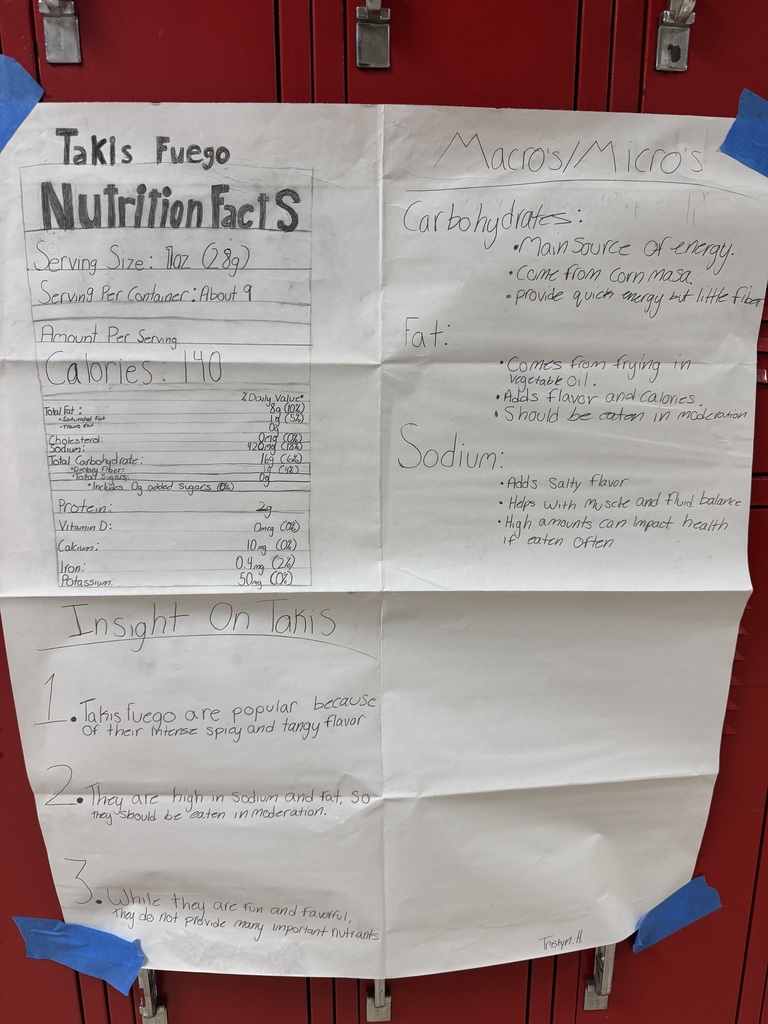 Takis Fuego
Nutrition Facts
Serving Size: 1oz (28g)
Serving Per Container: About 9
Amount Per Serving
Calories: 140
% Daily Value*
Total Fat: 8g (10%)
• Saturated Fat 1g (5%)
• Trans Fat 0g
Cholesterol: 0mg (0%)
Sodium: 420mg (18%)
Total Carbohydrate: 16g (6%)
• Dietary Fiber: 1g (4%)
• Total Sugars: 0g
• Includes 0g added sugars (0%)
Protein: 2g
Vitamin D: 0mcg (0%)
Calcium: 10mg (0%)
Iron: 0.4mg (2%)
Potassium: 50mg (0%)
Insight On Takis
1. Takis Fuego are popular because
of their intense spicy and tangy flavor
2. They are high in sodium and fat, so
they should be eaten in moderation.
3. While they are fun and flavorful,
they do not provide many important nutrients
Macro's/Micro's
Carbohydrates:
• Main source of energy.
• Come from corn masa.
• provide quick energy but little fiber
Fat:
• Comes from frying in
vegetable oil.
• Adds flavor and calories.
• Should be eaten in moderation
Sodium:
• Adds salty flavor
• Helps with muscle and fluid balance
• High amounts can impact health
if eaten often
Tristyn. H.